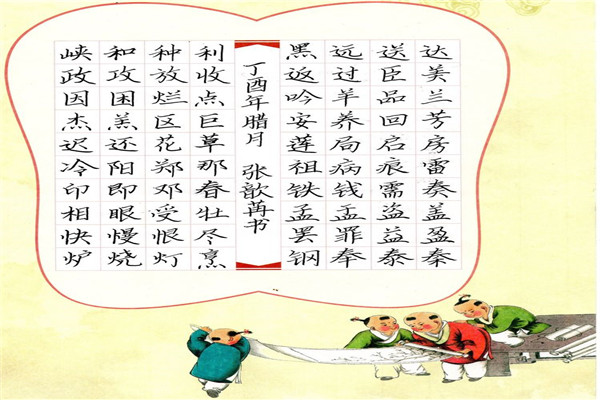 达美兰芳房雷奏盖盈秦
送臣品回启痕需盗益泰
远过羊养局病钱盂罪奉
黑返吟安莲祖铁孟罢钢
丁酉年腊月 张歆苒书
利收点巨草那春壮尽烹
种放烂区花郑邓受恨灯
和攻困羔还阳即眼慢烧
峡政因杰迟冷印相快炉